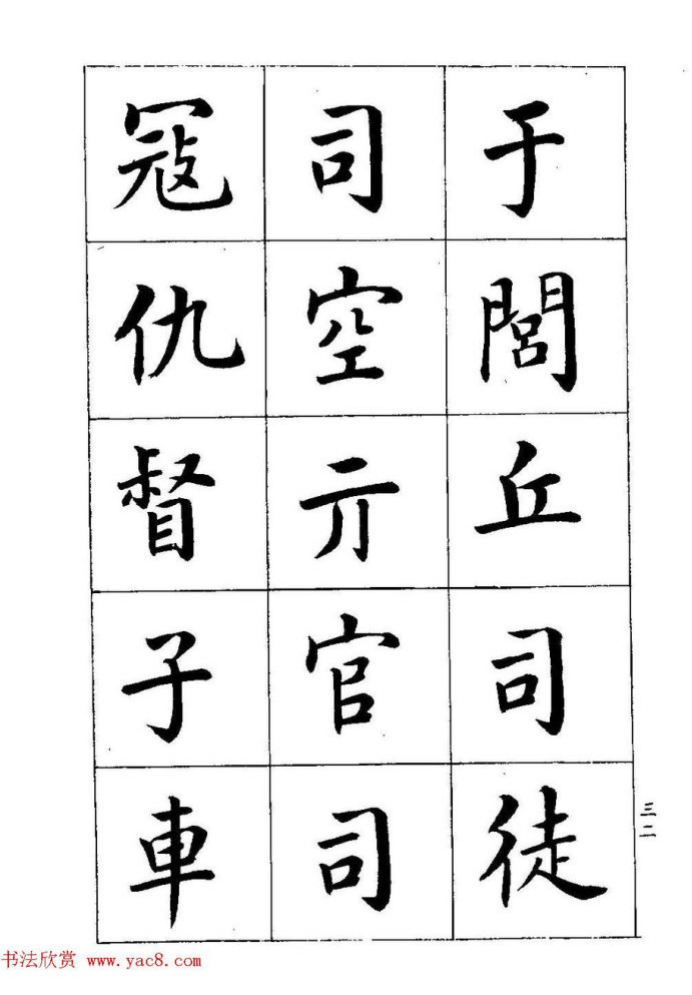 于閭丘司徒
司空亓官司
寇仇督子車
三二
书法欣赏 www.yac8.com